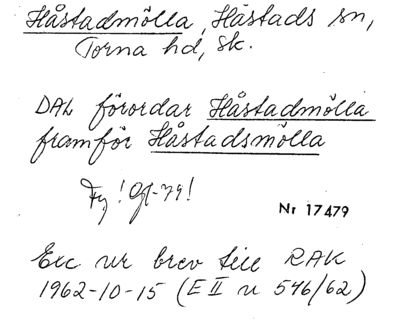 Håstadmölla, Håstads sn,
Torna hd, Sk.
DAL förordar Håstadmölla
framför Håstadsmölla
Fy!
Nr 17479
Exc ur brev till RAK
1962-10-15 (E II u 546/62)